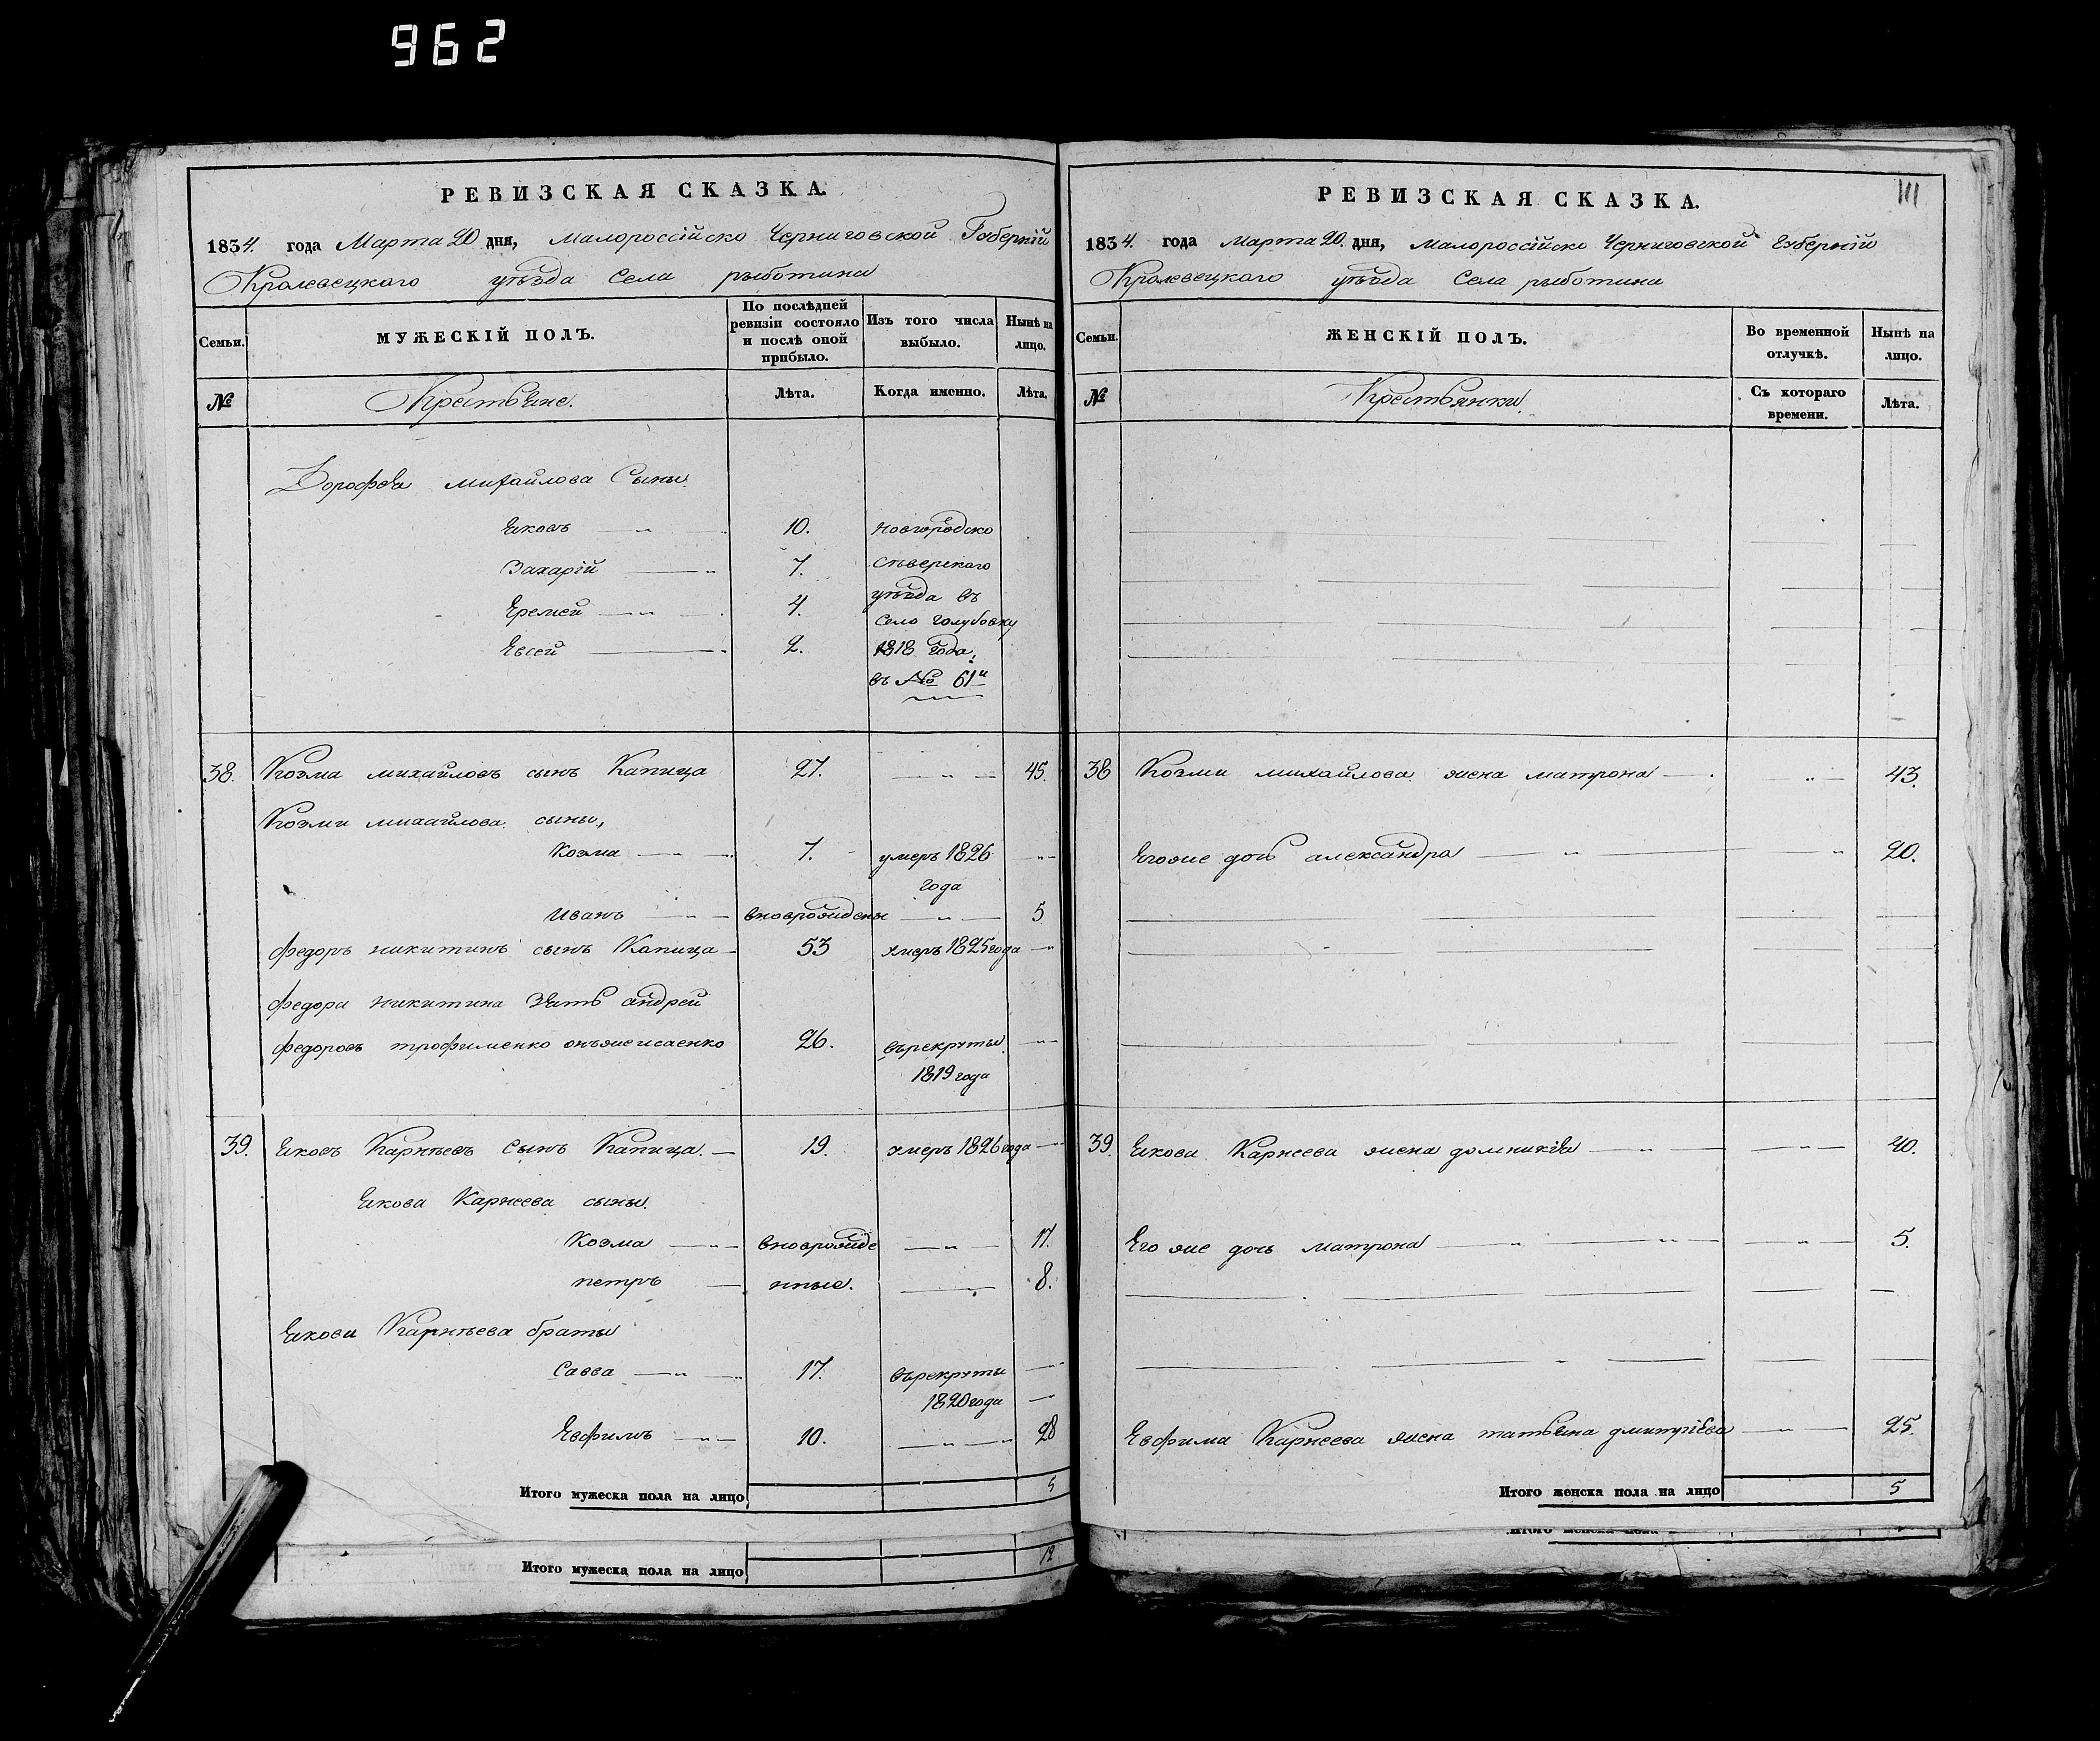 962
РЕВИЗСКАЯ СКАЗКА.
1834. года Марта 20 дня, Малороссійско Черниговской Губерніи
Кролевецкого уѣзда Села рыботина
Семьи.
МУЖЕСКІЙ ПОЛЪ.
По послѣдней ревизіи состояло и послѣ оной прибыло.
Изъ того числа выбыло.
Нынѣ на лицо.
№
Крестьяне.
Лѣта.
Когда именно.
Лѣта.
Дорофея михайлова Сыны
Яковъ 10. Новгородско
Захарій 7. Сѣверского
Еремей 4. уѣзда въ
село голубовку
Евсей 2. 1818 года,
въ № 61й
38. Козма михайловъ сынъ Капица 27. 45.
Козми михайлова сыны,
Козма 7. умеръ 1826
года
Иванъ вноврожденны 5
Федоръ никитинъ сынъ Капица 53 умеръ 1825 года
Федора никитина зять андрей
Федоровъ трофименко онъже исаенко 26. върекруты
1819 года
39. Яковъ Карнѣевъ Сынъ Капица. 19. умеръ 1826 года
Якова Карнеева сыны.
Козма вноврожде 17.
петръ нные. 8.
Якова Карнѣева браты
Савва 17. върекруты
1820 года
Евфимъ 10. 28
Итого мужеска пола на лицо 5
Итого мужеска пола на лицо 12
111
РЕВИЗСКАЯ СКАЗКА.
1834. года марта 20. дня, малороссійско Черниговской Губерніи
Кролевецкого уѣзда Села рыботина
Семьи.
ЖЕНСКІЙ ПОЛЪ.
Во временной отлучкѣ.
Нынѣ на лицо.
№
Крестьянки.
Съ котораго времени.
Лѣта.
38 Козми михайлова жена матрона 43.
Егоже дочь александра 20.
39. Якова Карнеева жена домникія 40.
Его же дочь матрона 5.
Евфима Карнеева жена татьяна дмитріева 25.
Итого женска пола на лицо 5
Итого женска пола